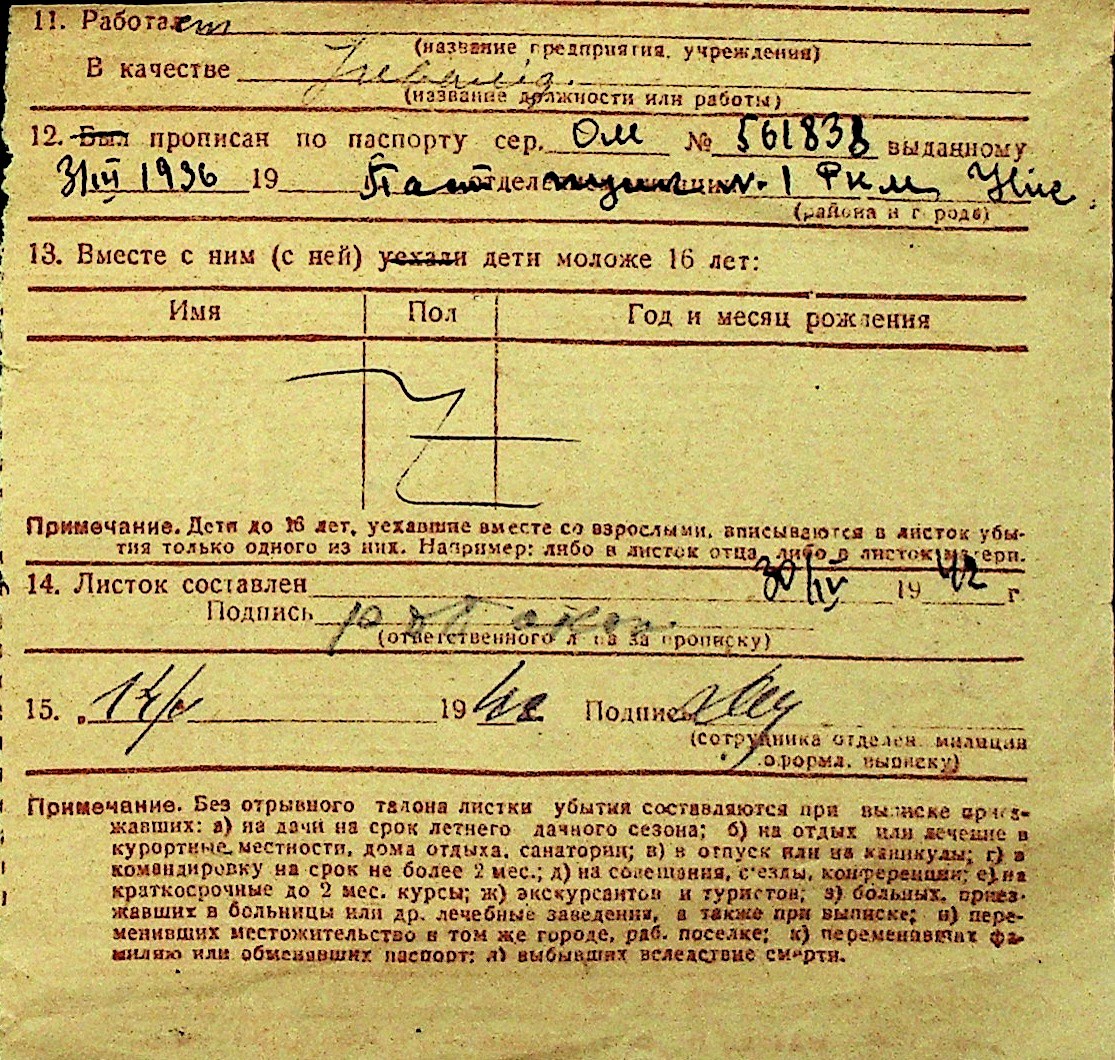 11. Работает
(название предприятия, учреждения)
В качестве Инвалид.
(название должности или работы)
12. Был прописан по паспорту сер. ОМ № 561838 выданному
3/III 1936 19 отделе № 1 РКМ
(района и города)
13. Вместе с ним (с ней) уехали дети моложе 16 лет:
Имя Пол Год и месяц рождения
Примечание. Дети до 16 лет, уехавшие вместе со взрослыми, вписываются в листок убы-
тия только одного из них. Например: либо в листок отца, либо в листок матери.
14. Листок составлен 30/IV 1942 г
Подпись
(ответственного лица за прописку)
15. 19 42 Подпись
(сотрудника отделен. милиции
оформл. выписку)
Примечание. Без отрывного талона листки убытия составляются при выписке приез-
жавших: а) на дачи на срок летнего дачного сезона; б) на отдых или лечение в
курортные местности, дома отдыха, санатории; в) в отпуск или на каникулы; г) в
командировку на срок не более 2 мес.; д) на совещания, с'езды, конференции; е) на
краткосрочные до 2 мес. курсы; ж) экскурсантов и туристов; з) больных, приез-
жавших в больницы или др. лечебные заведения, а также при выписке; и) пере-
менивших местожительство в том же городе, раб. поселке; к) переменивших фа-
милию или обменявших паспорт; л) выбывших вследствие смерти.